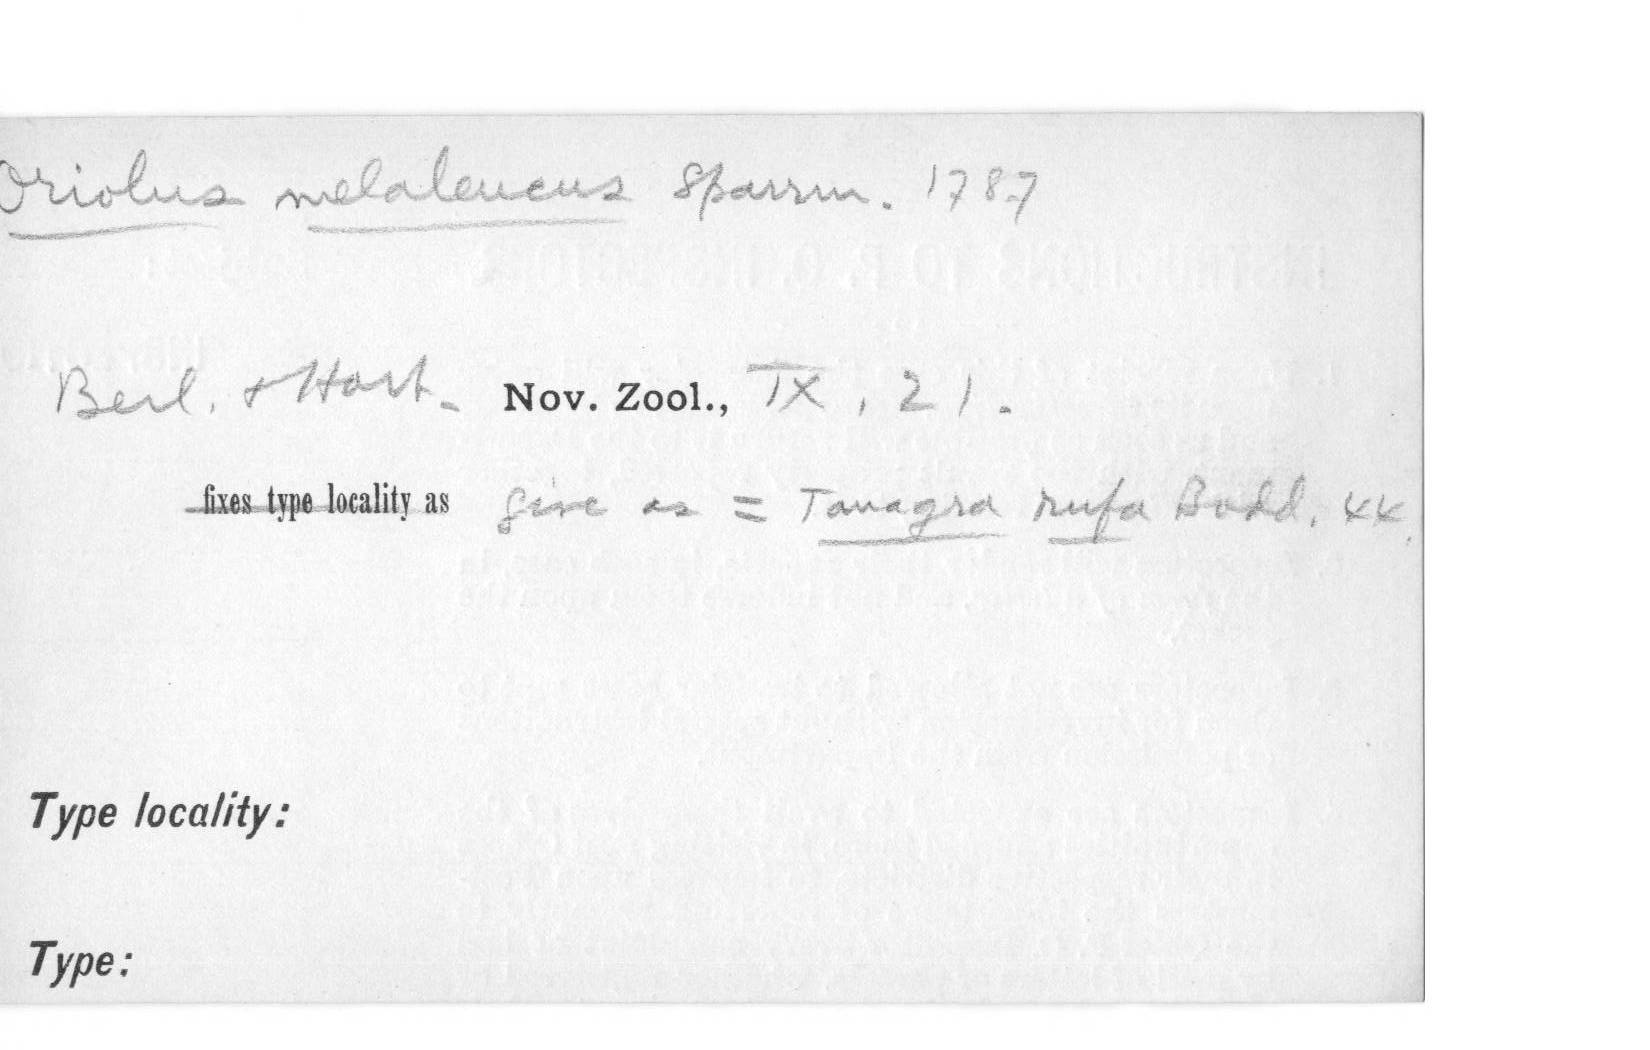 Oriolus melaleucus Sparrm. 1787
Berl. + Hart. Nov. Zool., IX, 21.
fixes type locality as give as = Tanagra rufa Bodd. xx.
Type locality:
Type: